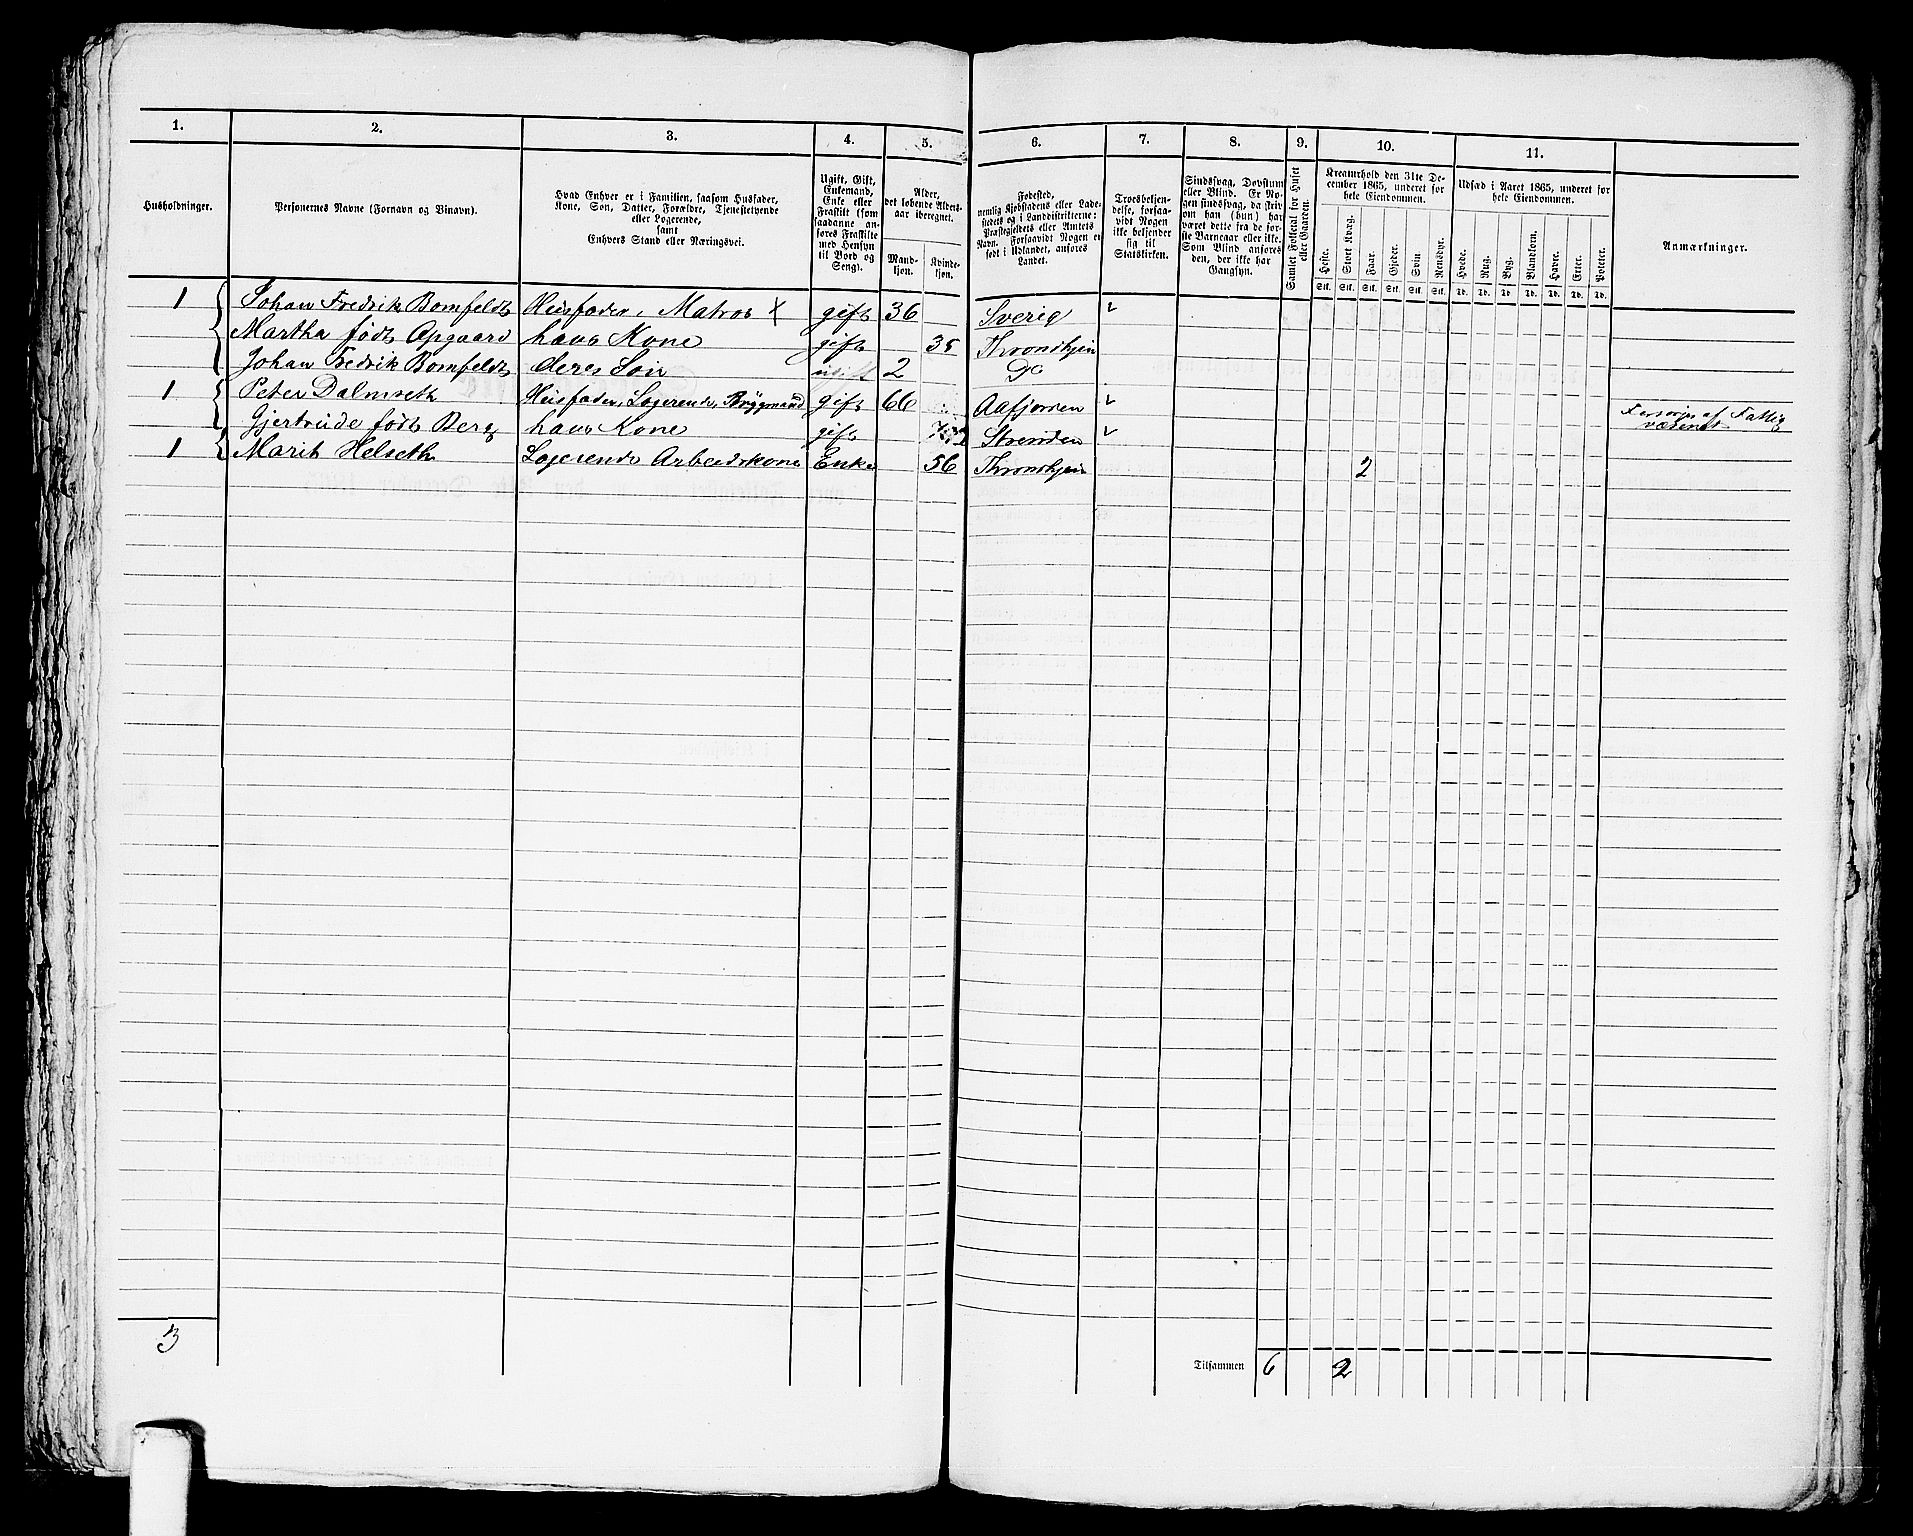 1. 2. 3. 4. 5. 6. 7. 8. 9. 10. 11.
Husholdninger.
Personernes Navne (Fornavn og Tilnavn).
Hvad Enhver er i Familien, saasom Husfader,
Kone, Søn, Datter, Forældre, Tjenestetyende
eller Logerende,
samt
Enhvers Stand eller Næringsvei.
Ugift, Gift,
Enkemand,
Enke eller
Fraskilt (som
saadanne an-
føres Fraskilte
med Hensyn
til Bord og
Seng).
Alder,
det løbende Alders-
aar iberegnet.
Mand-
kjøn.
Kvinde-
kjøn.
Fødested,
nemlig Kjøbstadens eller Lade-
stedets og i Landdistrikterne:
Præstegjeldets eller Amtets
Navn. Forsaavidt Nogen er
født i Udlandet, anføres
Landet.
Troesbekjen-
delse, forsaa-
vidt Nogen
ikke bekjender
sig til
Statskirken.
Sindssvag, Døvstum
eller Blind. Er No-
gen sindssvag, da skriv
om han (hun) har
været dette fra de før-
ste Barneaar eller ikke.
Som Blind anføres
den, der ikke har
Gangsyn.
Samlet Folketal for Huset
eller Gaarden.
Kreaturhold den 31te De-
cember 1865, underet for
hele Eiendommen.
Heste. Stort Kvæg. Faar. Gjeder. Svin. Rensdyr.
Stk. Stk. Stk. Stk. Stk. Stk.
Udsæd i Aaret 1865, underet for
hele Eiendommen.
Hvede. Rug. Byg. Blandkorn. Havre. Erter. Poteter.
Td. Td. Td. Td. Td. Td. Td.
Anmærkninger.
1 Johan Fredrik Bomfeldt Husfader, Matros X gift 36 Sverig
Martha født Opgaard hans Kone gift 35 Thronhjem
Johan Fredrik Bomfeldt deres Søn ugift 2 Do
1 Peter Dalmseth Husfader, Logerende, Bryggmand gift 66 Aafjorden
Gjertrude født Berg hans Kone gift Strinden Forsørges af Fattig
væsenet
1 Marit Helseth Logerende Arbeidskone Enke 56 Thronhjem 2
3 Tilsammen 6 2